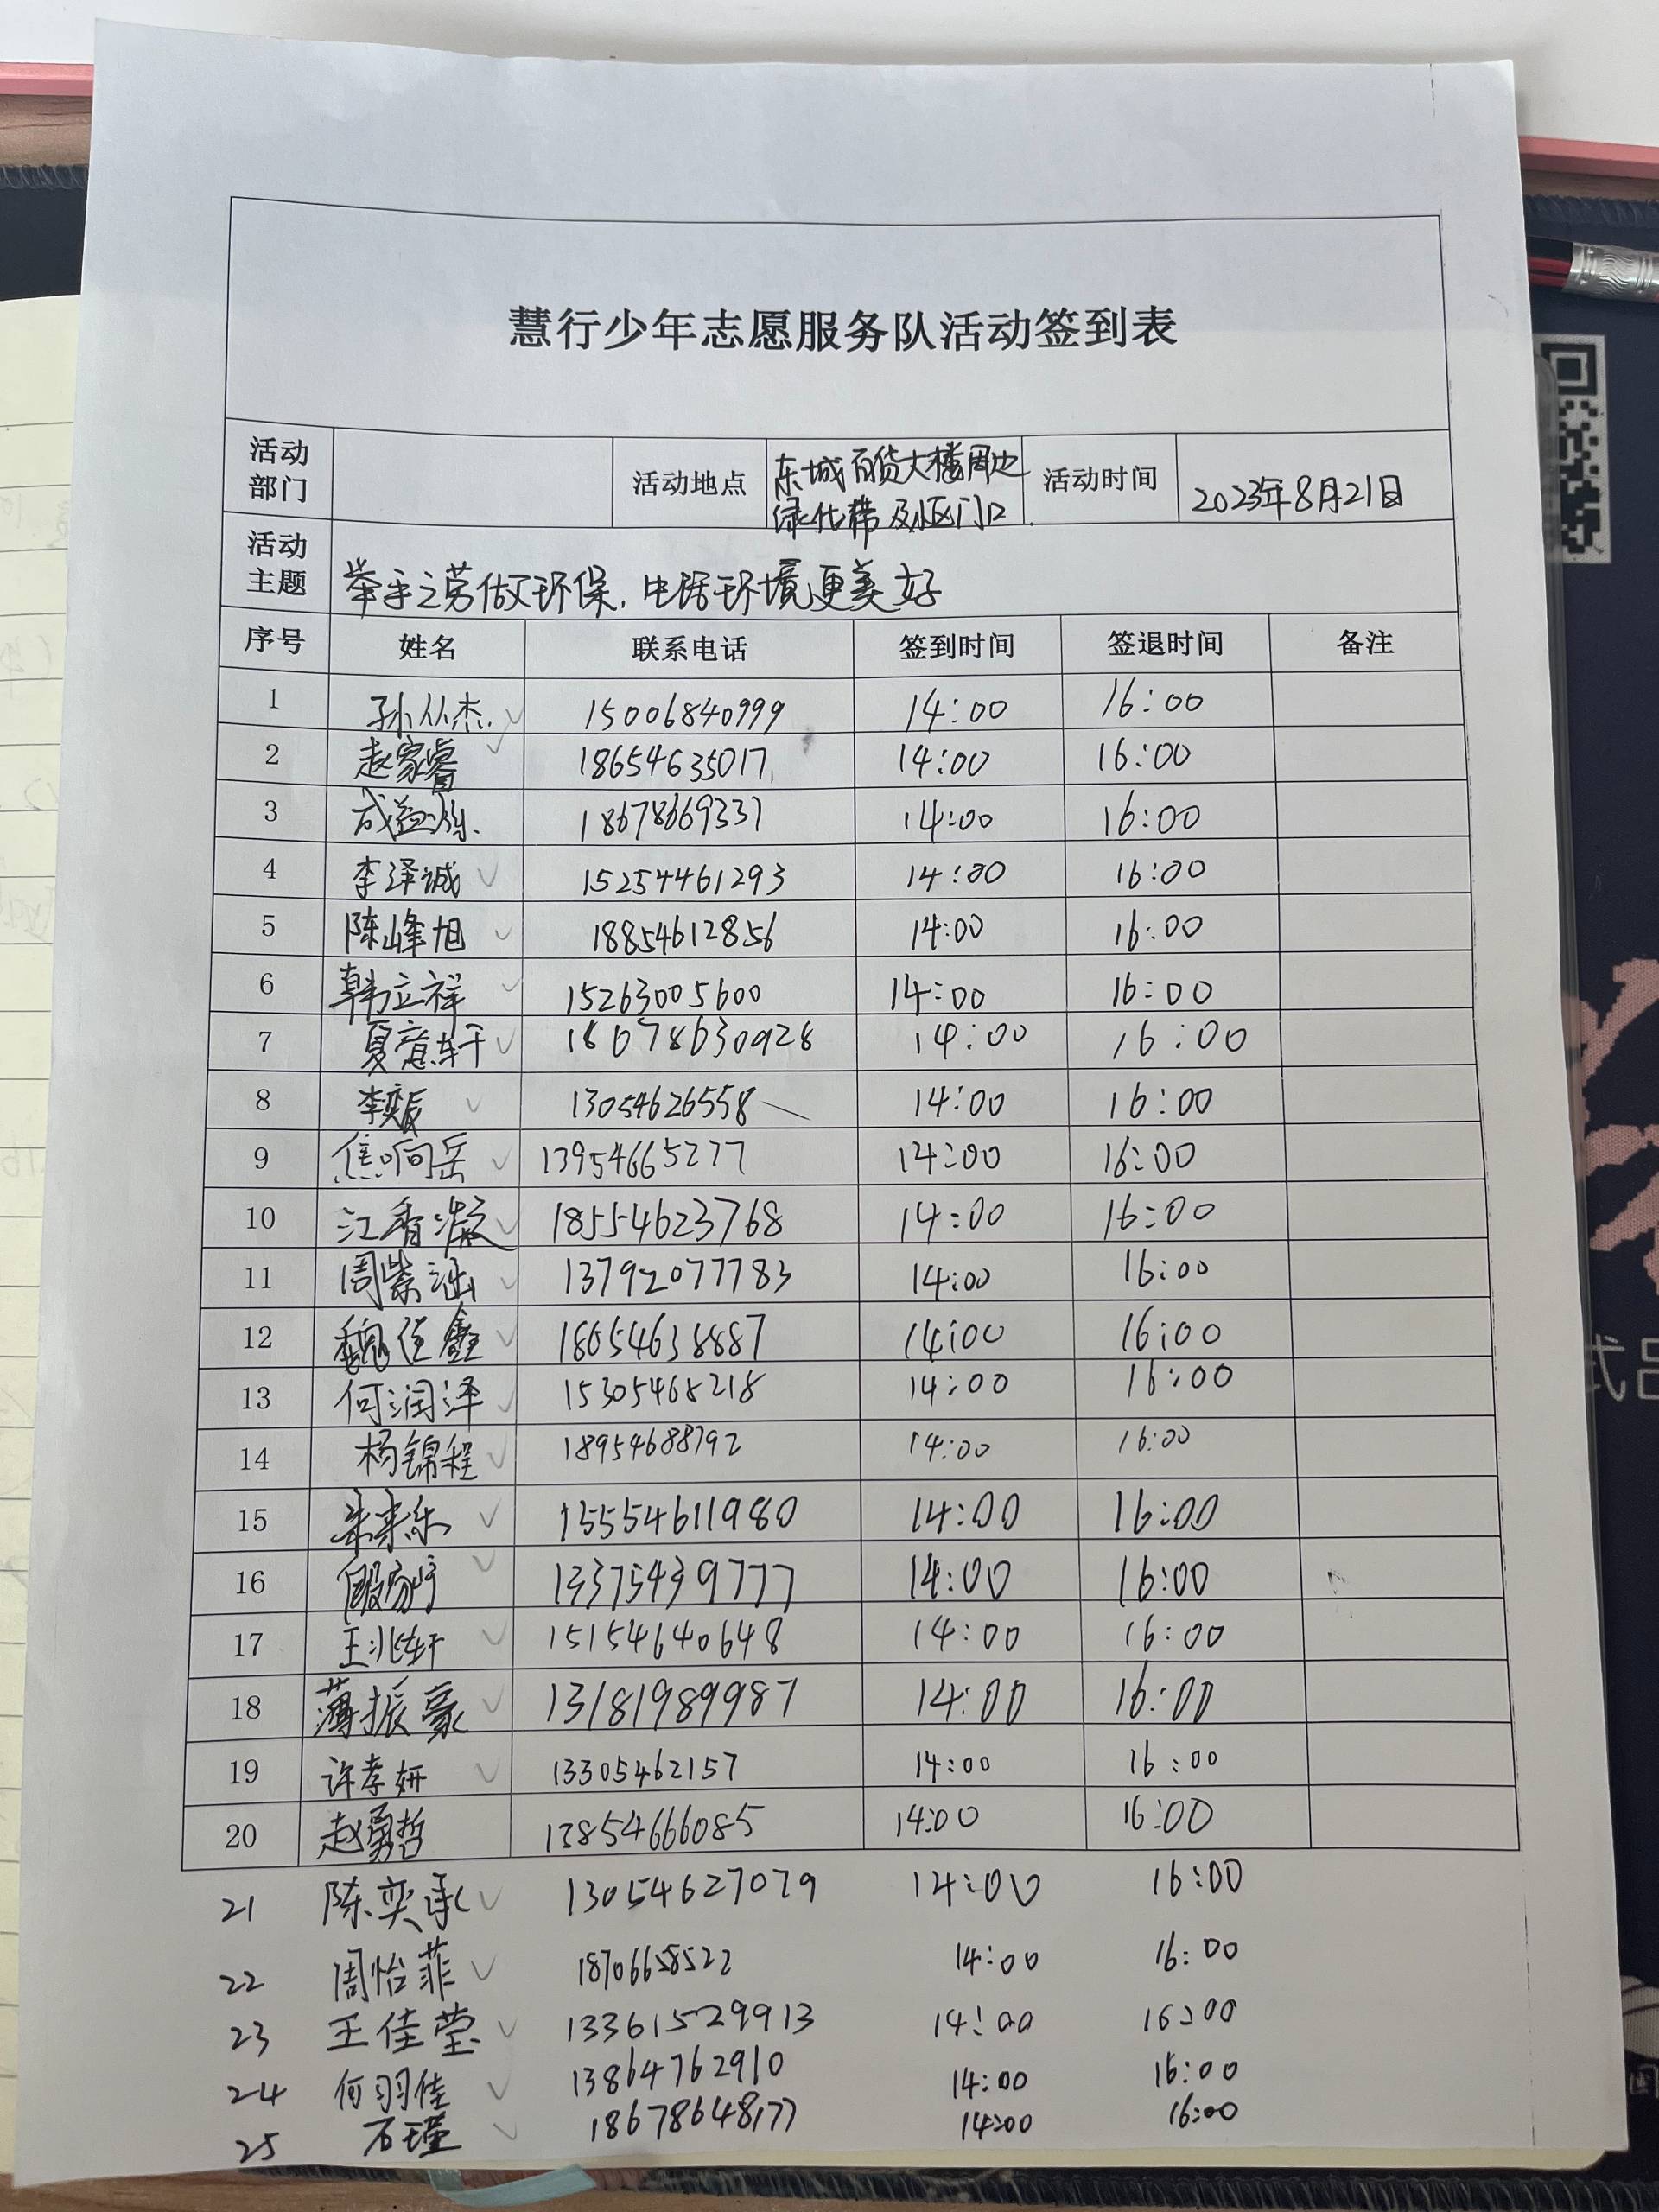 慧行少年志愿服务队活动签到表
活动部门 活动地点 东城百货大楼周边绿化带及小区门口 活动时间 2023年8月21日
活动主题 举手之劳做环保,电话环境更美好
序号 姓名 联系电话 签到时间 签退时间 备注
1 孙从杰 15006840999 14:00 16:00
2 赵家睿 18654635017 14:00 16:00
3 成益 18678669337 14:00 16:00
4 李泽诚 15254461293 14:00 16:00
5 陈峰旭 18854612856 14:00 16:00
6 韩立祥 15263005600 14:00 16:00
7 夏意轩 18678630928 14:00 16:00
8 李奕辰 13054626558 14:00 16:00
9 焦响岳 13954665277 14:00 16:00
10 江香凝 18554623768 14:00 16:00
11 周紫涵 13792077783 14:00 16:00
12 魏佳鑫 18654638887 14:00 16:00
13 何润泽 15305468218 14:00 16:00
14 杨锦程 18954688792 14:00 16:00
15 15554611980 14:00 16:00
16 13375439777 14:00 16:00
17 王兆轩 15154640648 14:00 16:00
18 薄振豪 13181989987 14:00 16:00
19 许孝妍 13305462157 14:00 16:00
20 赵勇哲 13854666085 14:00 16:00
21 陈奕承 13054627079 14:00 16:00
22 周怡菲 18706658522 14:00 16:00
23 王佳莹 13361529913 14:00 16:00
24 何羽佳 13864762910 14:00 16:00
25 石瑾 18678648177 14:00 16:00